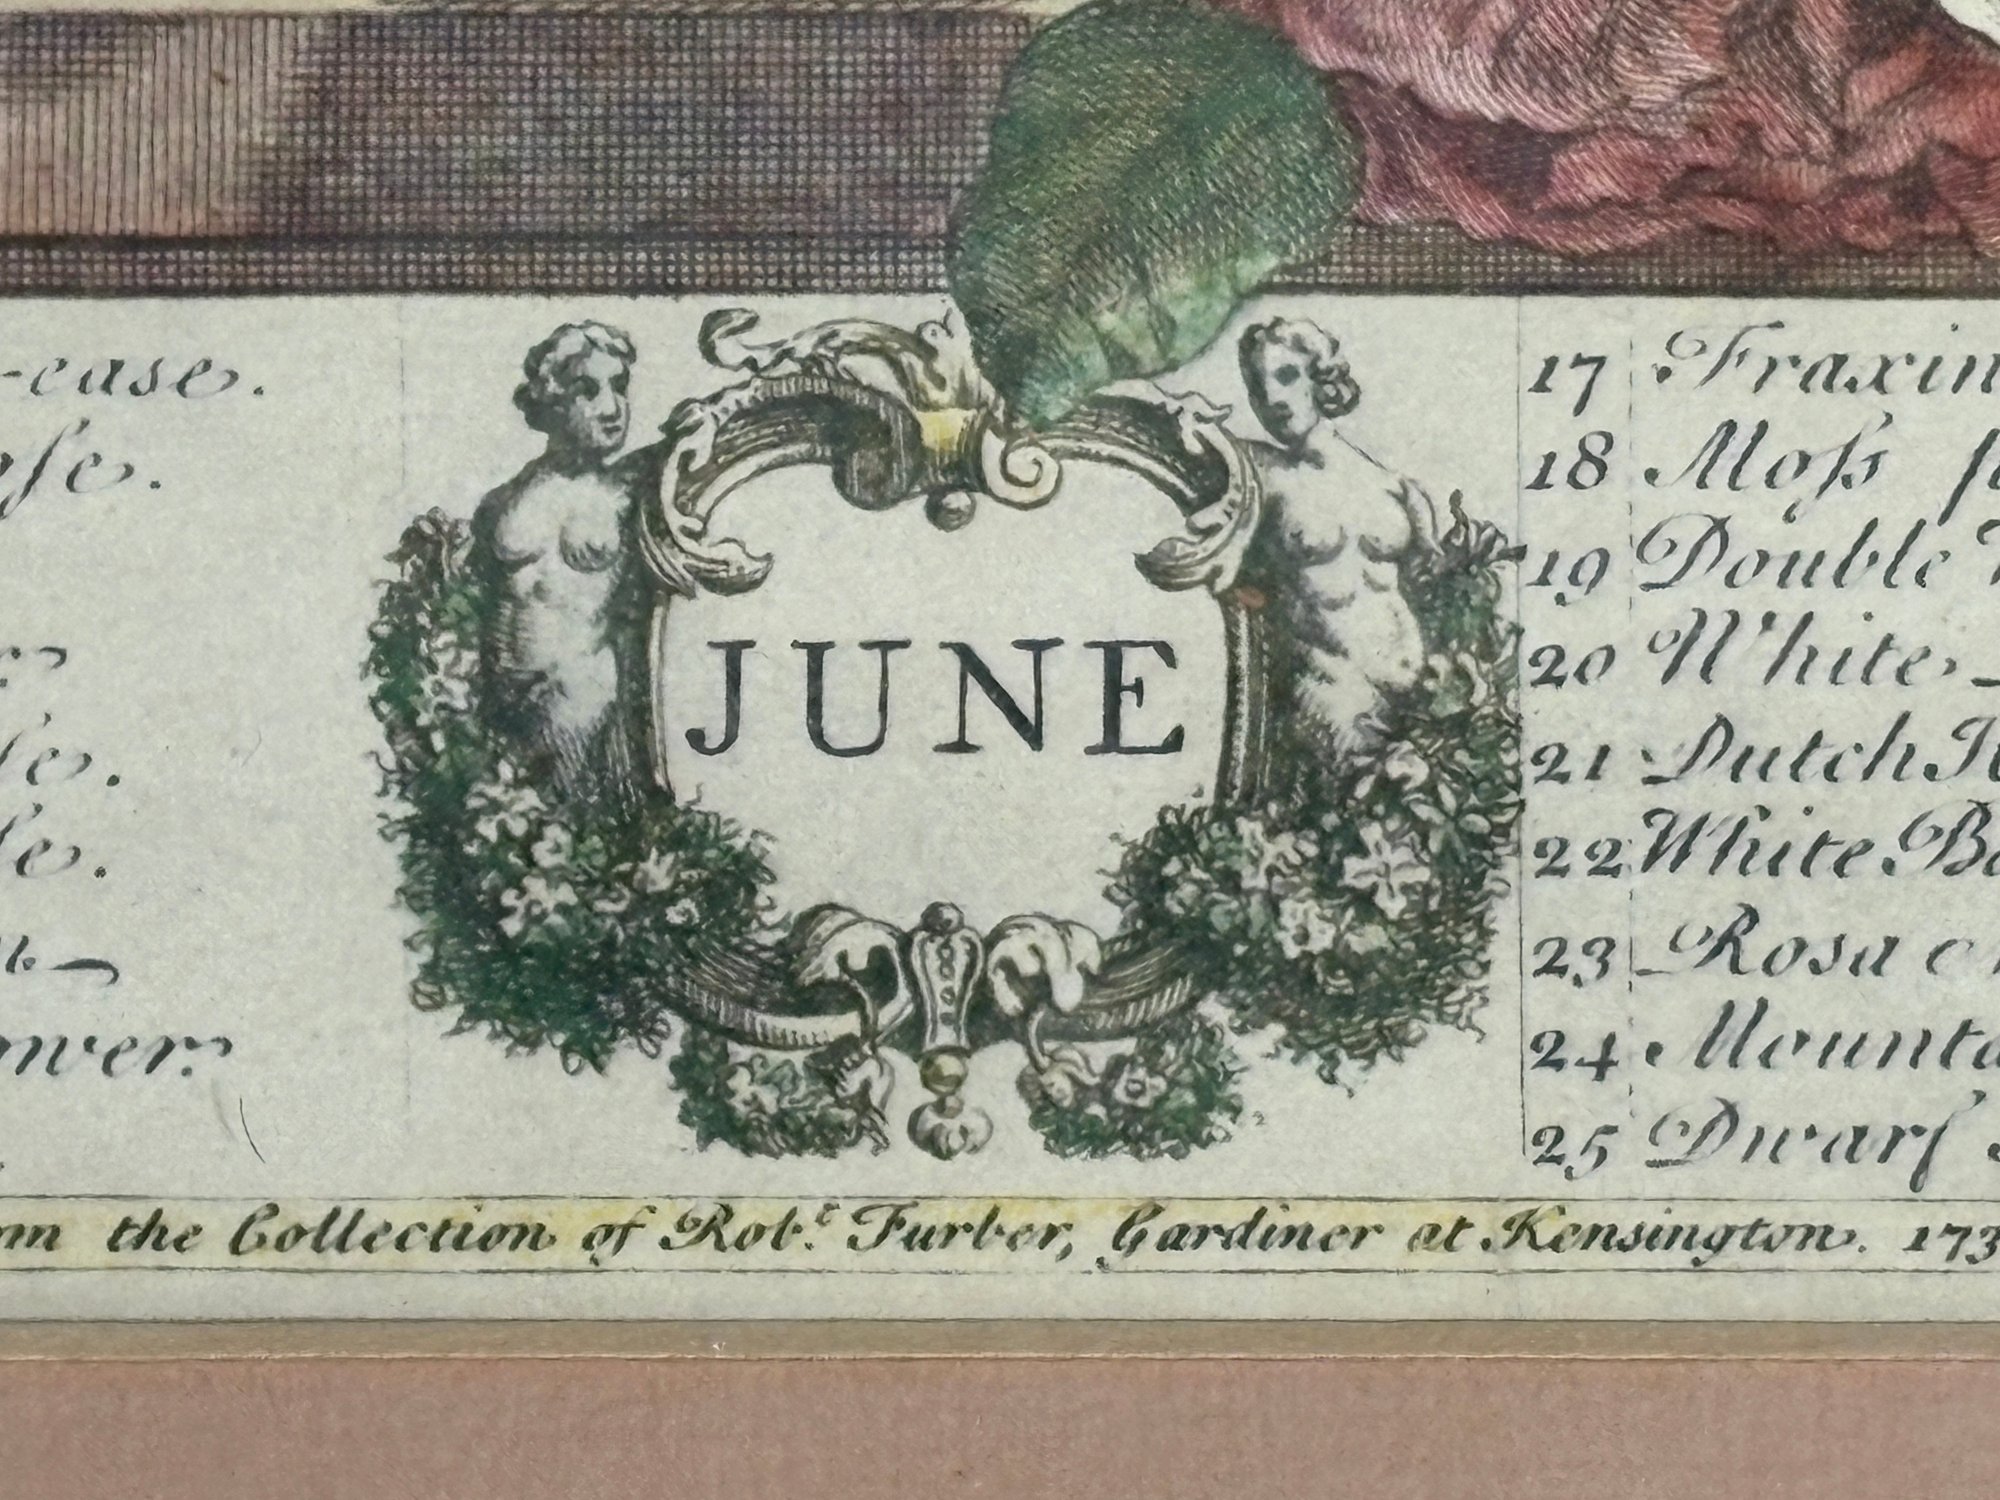 -ease.
JUNE
17 Fraxin
18 Moſs
19 Double
20 White
21 Dutch
22 White Ba
23 Rosa
24 Mounta
25 Dwarf
the Collection of Rob.t Furber, Gardiner at Kensington. 173